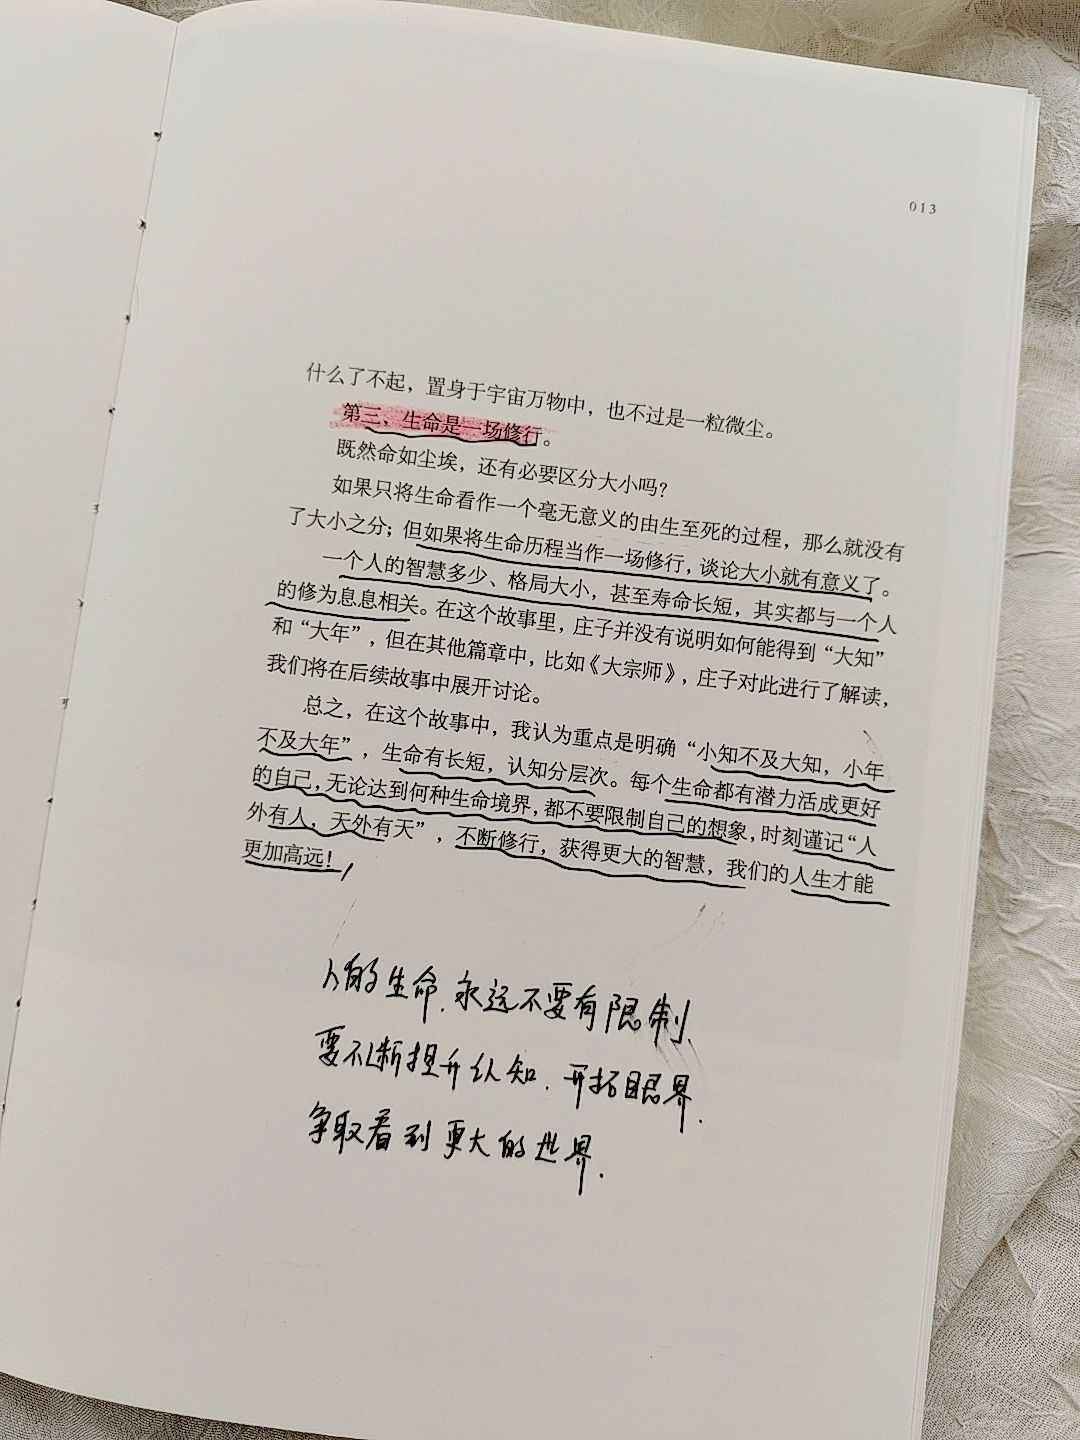 013
什么了不起，置身于宇宙万物中，也不过是一粒微尘。
第三，生命是一场修行。
既然命如尘埃，还有必要区分大小吗？
如果只将生命看作一个毫无意义的由生至死的过程，那么就没有
了大小之分；但如果将生命历程当作一场修行，谈论大小就有意义了。
一个人的智慧多少、格局大小，甚至寿命长短，其实都与一个人
的修为息息相关。在这个故事里，庄子并没有说明如何能得到“大知”
和“大年”，但在其他篇章中，比如《大宗师》，庄子对此进行了解读，
我们将在后续故事中展开讨论。
总之，在这个故事中，我认为重点是明确“小知不及大知，小年
不及大年”，生命有长短，认知分层次。每个生命都有潜力活成更好
的自己，无论达到何种生命境界，都不要限制自己的想象，时刻谨记“人
外有人，天外有天”，不断修行，获得更大的智慧，我们的人生才能
更加高远！
人的生命.永远不要有限制.
要不断提升认知.开拓眼界.
争取看到更大的世界.